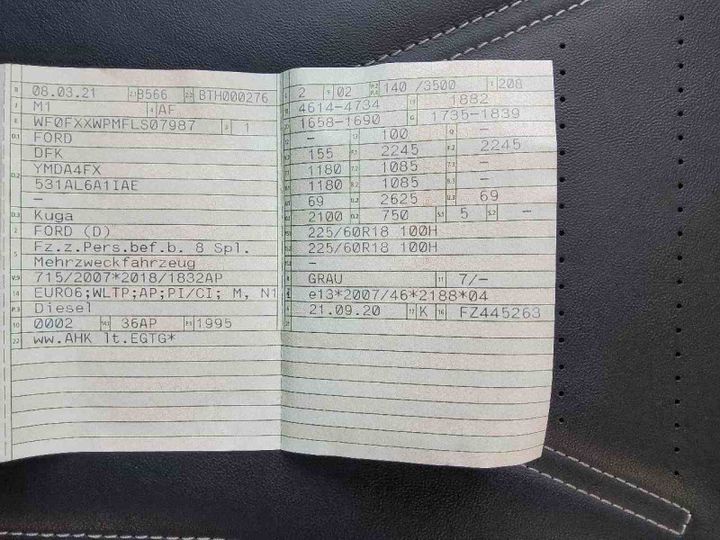 B 08.03.21 2.1 8566 2.2 BTH000276
J M1 4 AF
E WF0FXXWPMFLS07987 3 1
D.1 FORD
DFK
D.2 YMDA4FX
531AL6A1IAE
–
D.3 Kuga
2 FORD (D)
5 Fz.z.Pers.bef.b. 8 Spl.
Mehrzweckfahrzeug
V.9 715/2007*2018/1832AP
14 EURO6;WLTP;AP;PI/CI; M, N1
P.3 Diesel
10 0002 14.1 36AP P.1 1995
22 ww.AHK lt.EGTG*
L 2 9 02 P.2 P.4 140 /3500 T 208
18 4614-4734 19 1882
20 1658-1690 G 1735-1839
12 – 13 100 Q –
V.7 155 F.1 2245 F.2 2245
7.1 1180 7.2 1085 7.3 –
8.1 1180 8.2 1085 8.3 –
U.1 69 U.2 2625 U.3 69
O.1 2100 O.2 750 S.1 5 S.2 –
15.1 225/60R18 100H
15.2 225/60R18 100H
15.3 –
R GRAU 11 7/-
K e13*2007/46*2188*04
6 21.09.20 17 K 16 FZ445263
21